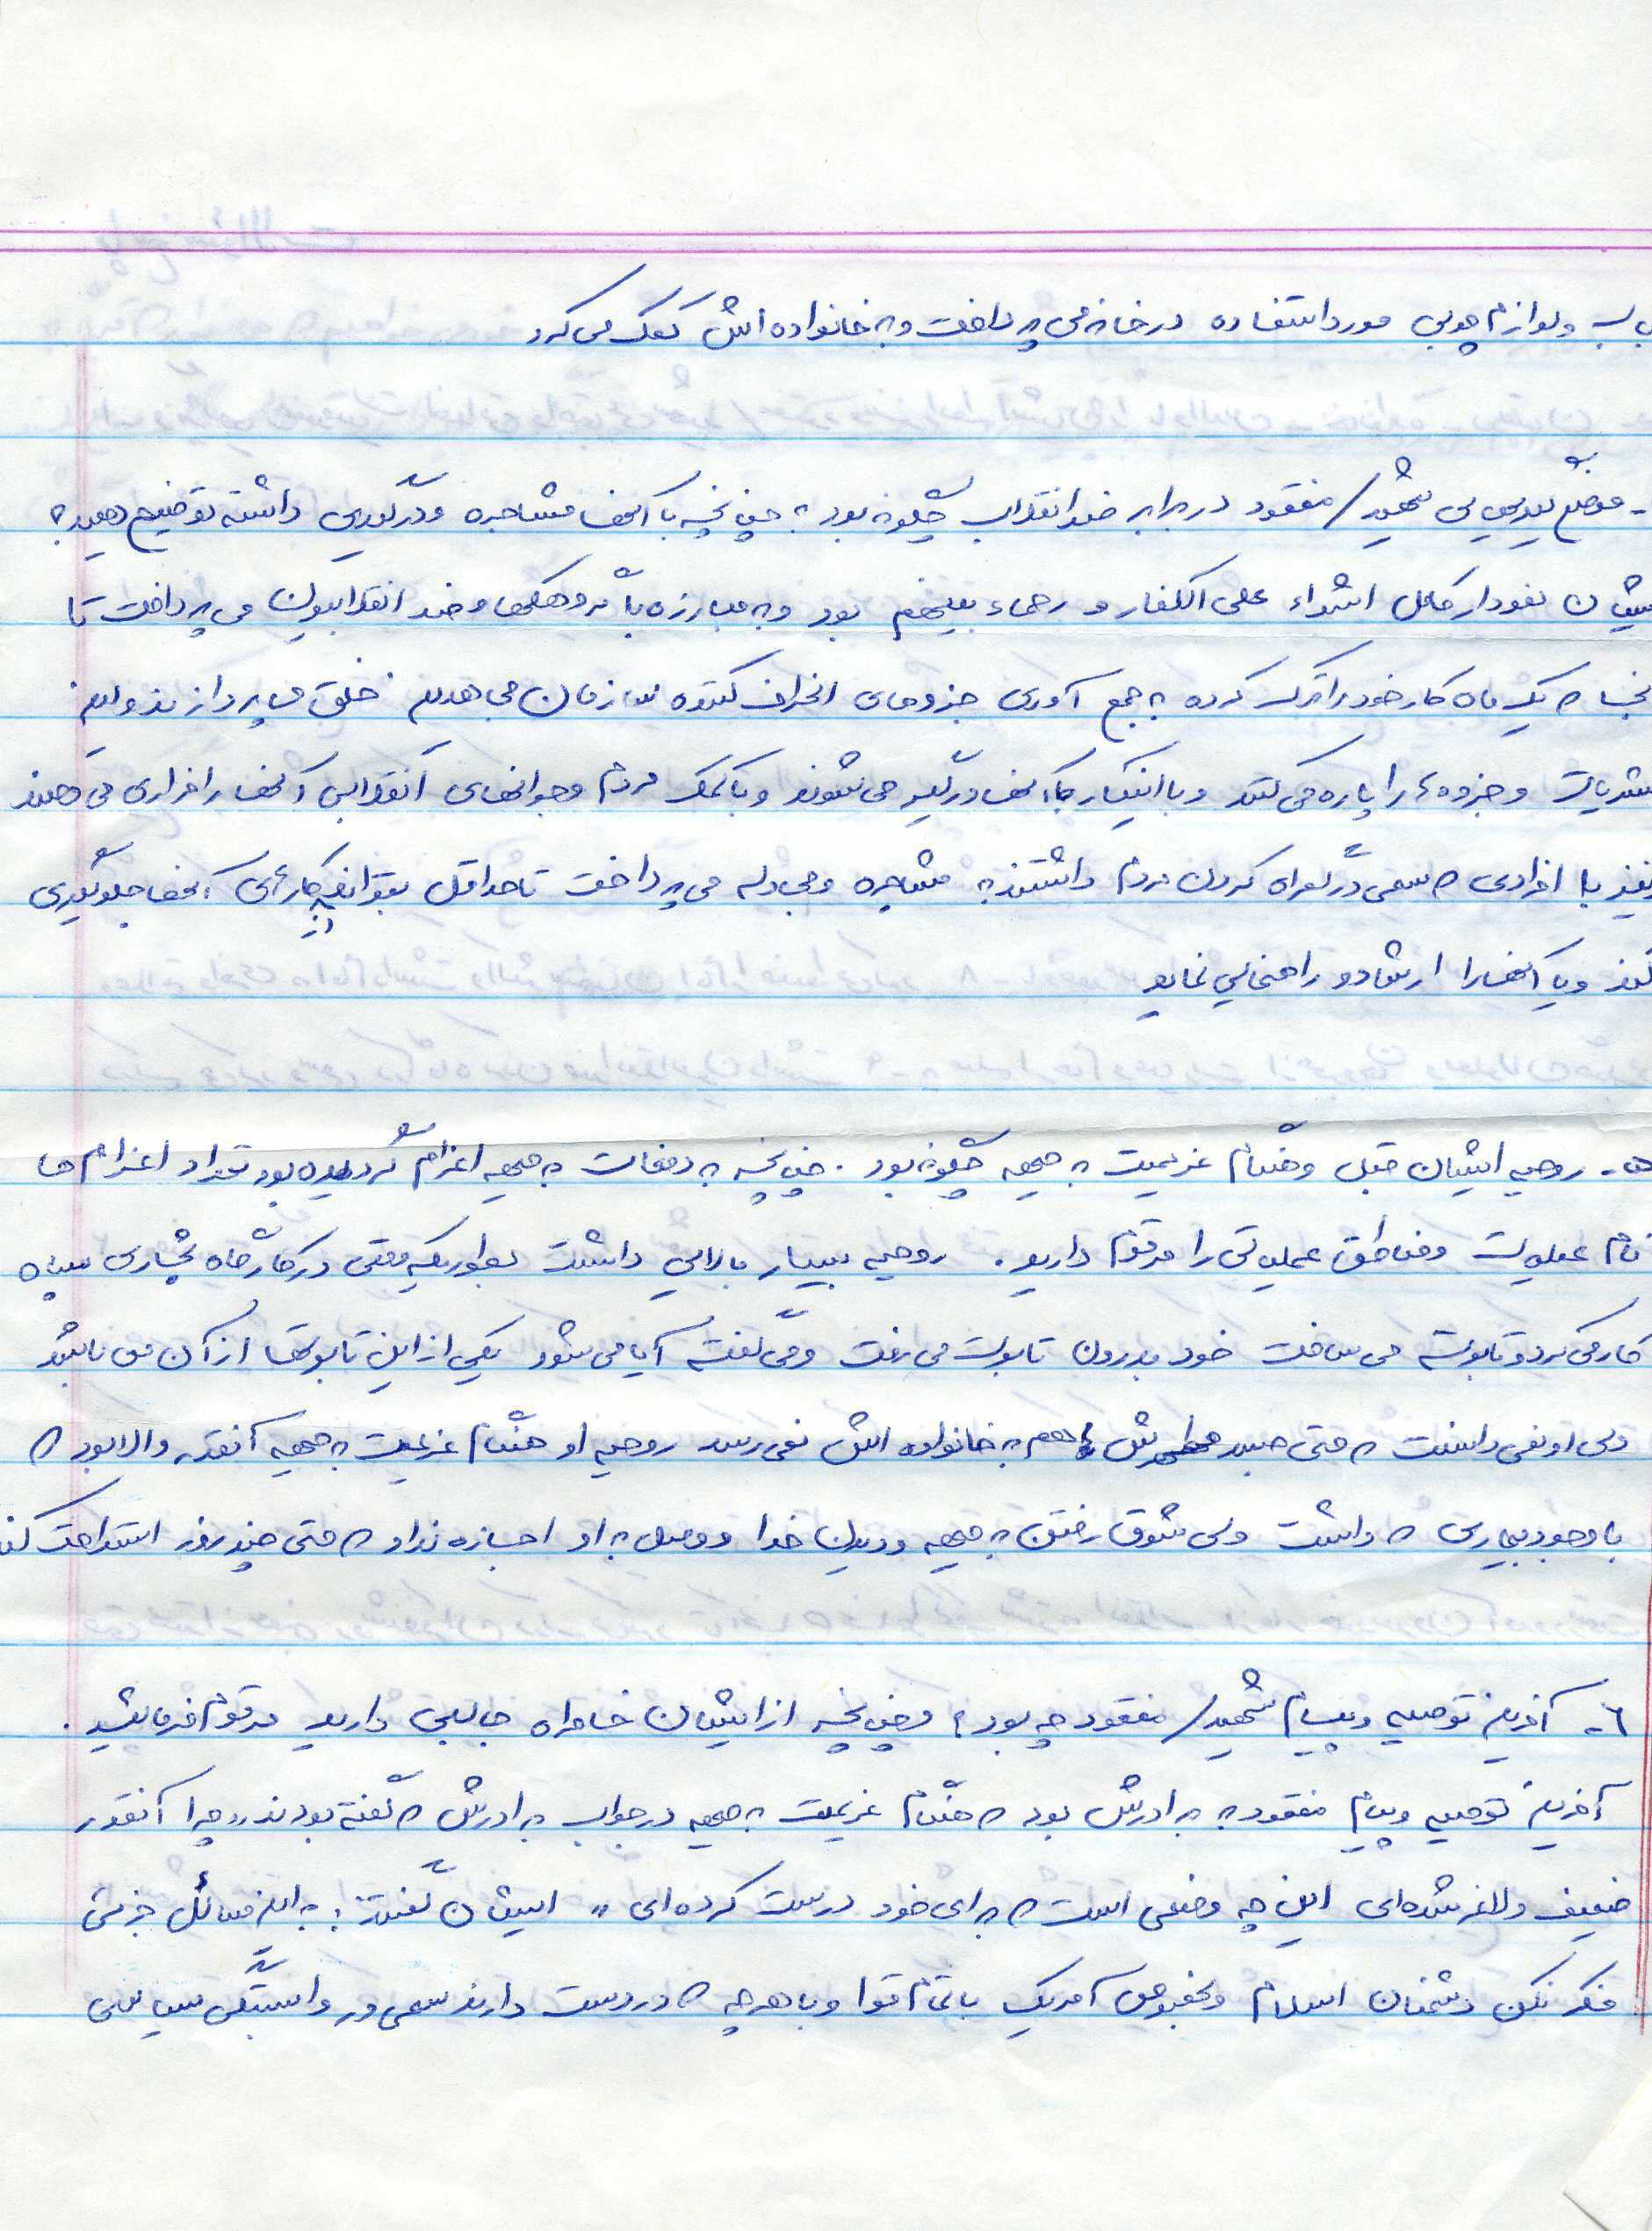 ب و لوازم چوبی مورد استفاده در خانه می پرداخت و به خانواده اش کمک می کرد
- موضع گیریهایی شهید/مفقود در برابر ضد انقلاب چگونه بود؟ چنانچه با آنها مشاجره و درگیری داشته توضیح دهید؟
ایشان نمودار کامل اشداء علی الکفار و رحماء بینهم بود و به مبارزه با گروهکها و ضد انقلابیون می پرداخت تا
که یک ماه کار خود را ترک کرده به جمع آوری جزوهای انحراف کننده سازمان مجاهدین خلق می پردازند و این
نشریات و جزوه ها را پاره می کنند و با اینکار با آنها درگیر می شوند و با کمک مردم و جوانهای انقلابی آنها را فراری می دهند
و نیز با افرادی که سعی در گمراه کردن مردم داشتند به مشاجره و مجادله می پرداخت تا حداقل بتواند از کارهای آنها جلوگیری
کند و یا آنها را ارشاد و راهنمایی نماید
۵- روحیه ایشان قبل و هنگام عزیمت به جبهه چگونه بود. چنانچه به دفعات به جبهه اعزام گردیده بود تعداد اعزام ها
نام عملیات و مناطق عملیاتی را مرقوم دارید. روحیه بسیار بالایی داشت بطوریکه وقتی در کارگاه نجاری سپاه
کار می کرد و تابوت می ساخت خود بدرون تابوت می رفت و می گفت آیا می شود یکی از این تابوتها از آن من باشد
ولی او نمی دانست که حتی جسد مطهرش هم به خانواده اش نمی رسد روحیه او هنگام عزیمت به جبهه آنقدر والا بود که
با وجود بیماری که داشت ولی شوق رفتن به جبهه و دیدن خدا و وصل به او اجازه نداد که حتی چند روز استراحت کند
۶- آخرین توصیه و پیام شهید/مفقود چه بود؟ و چنانچه از ایشان خاطره جالبی دارید مرقوم فرمائید.
آخرین توصیه و پیام مفقود به برادرش بود که هنگام عزیمت به جبهه در جواب برادرش که گفته بودند «چرا آنقدر
ضعیف و لاغر شده ای این چه وضعی است که برای خود درست کرده ای» ایشان گفتند: به این مسائل جزئی
فکر نکن دشمنان اسلام و بخصوص آمریکا با تمام قوا و با هر چه که در دست دارند سعی در وابستگی سیاسی